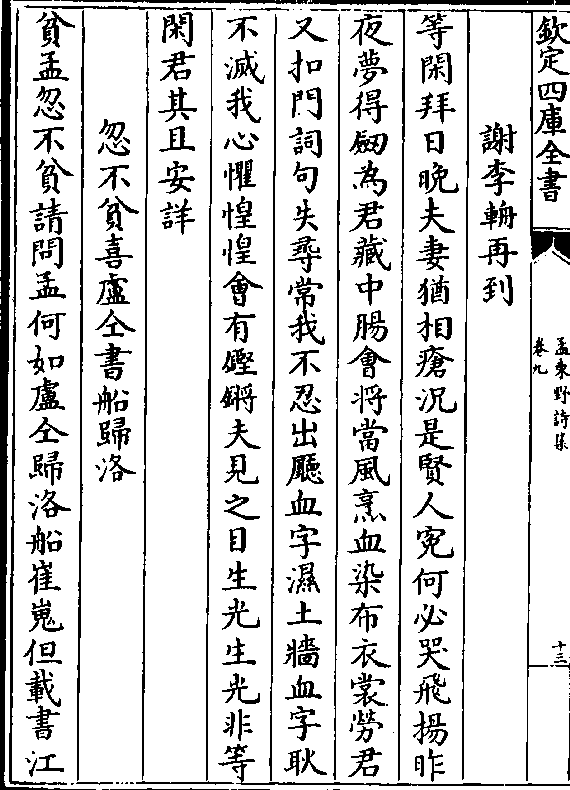 欽定四庫全書
孟東野詩集
卷九
十三
謝李輈再到
等閑拜日晚夫妻猶相瘡況是賢人寃何必哭飛揚昨
夜夢得劒為君藏中腸會將當風烹血染布衣裳勞君
又扣門詞句失尋常我不忍出廳血字濕土牆血字耿
不滅我心懼惶惶會有鏗鏘夫見之目生光生光非等
閑君其且安詳
忽不貧喜盧仝書船歸洛
貧孟忽不貧請問孟何如盧仝歸洛船崔嵬但載書江